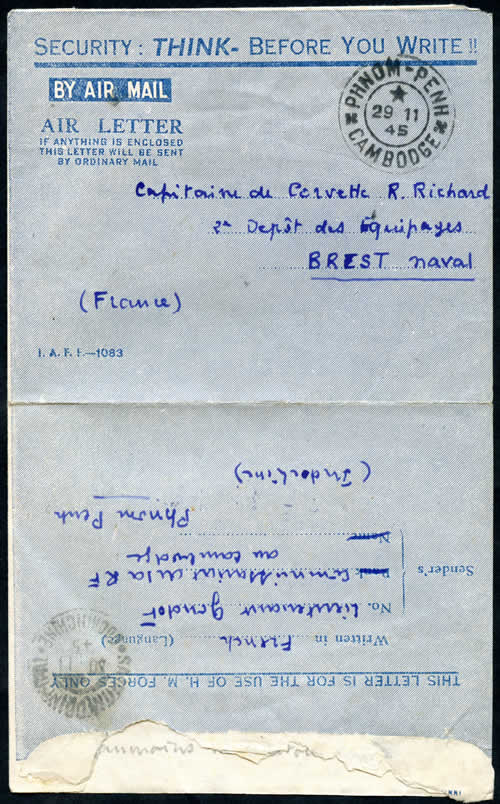 SECURITY: THINK- BEFORE YOU WRITE!!
BY AIR MAIL
AIR LETTER
IF ANYTHING IS ENCLOSED
THIS LETTER WILL BE SENT
BY ORDINARY MAIL
PHNOM-PENH
29 11
45
CAMBODGE
Capitaine de Corvette R. Richard
2e Depôt des Equipages
BREST naval
(France)
I. A. F. F.—1083
THIS LETTER IS FOR THE USE OF H. M. FORCES ONLY
Written in French (Language)
No. Lieutenant
Sender's
Rank Commissariat de la RF
au Cambodge
Name
Phnom Penh
(Indochine)
30 11
45